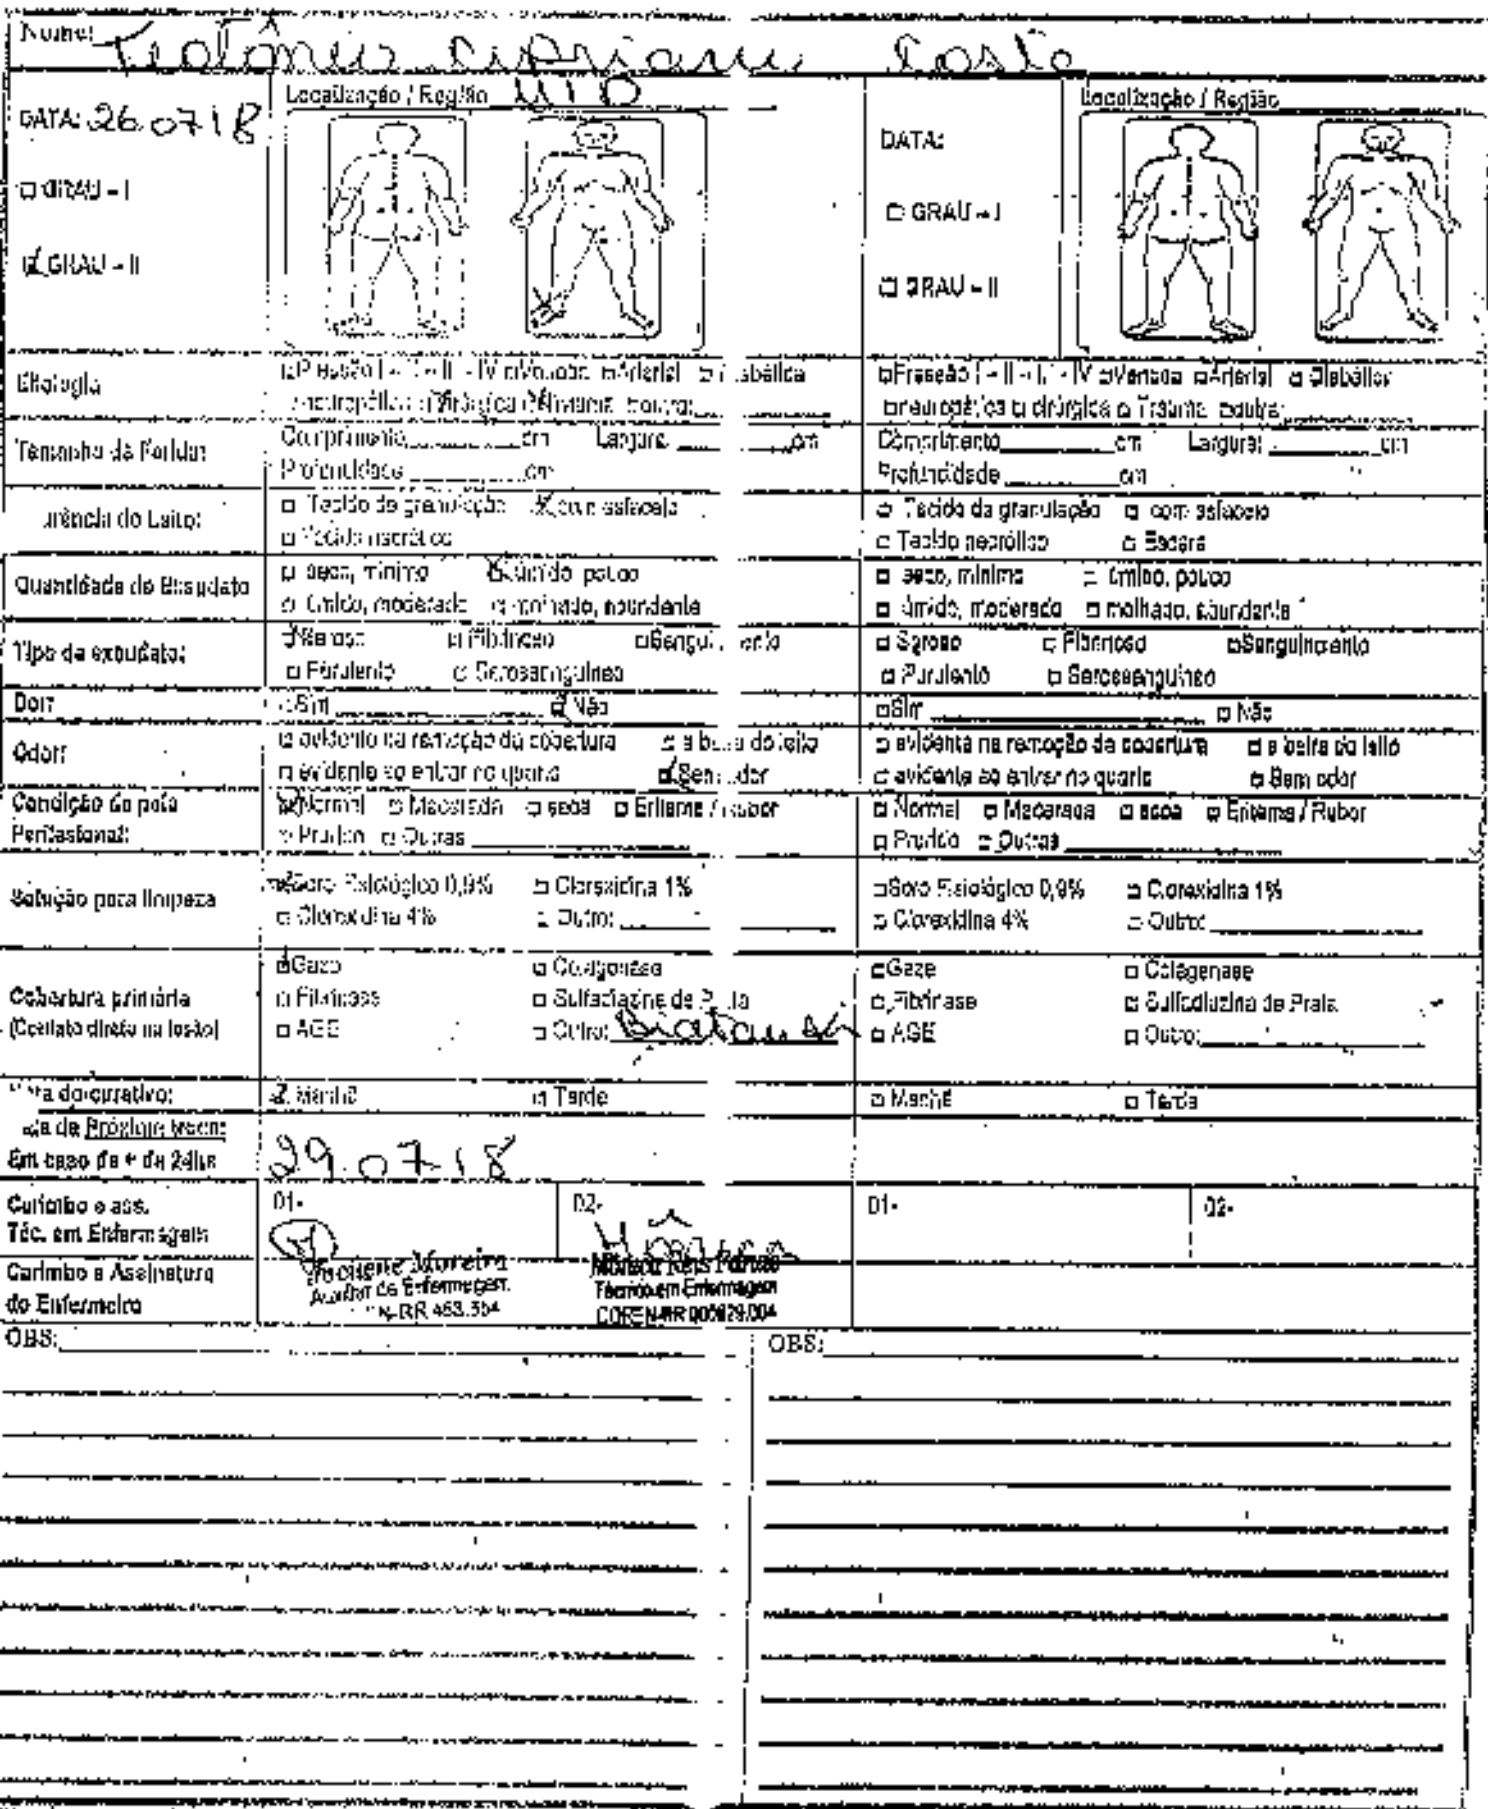 Nome: Teotônio Cipriano Costa
DATA: 26.07.18
Localização / Região MID
□ GRAU - I
GRAU - II
DATA:
Localização / Região
□ GRAU - I
□ GRAU - II
Etiologia
□Pressão I - II - III - IV □Venosa □Arterial □ Diabética
□neuropática cirúrgica Trauma □outra:
□Pressão I - II - III - IV □Venosa □Arterial □ Diabética
□neuropática □ cirúrgica □ Trauma □outra:
Tamanho da Ferida:
Comprimento cm Largura cm
Profundidade cm
Comprimento cm Largura: cm
Profundidade cm
do Leito:
□ Tecido de granulação com esfacelo
□ Tecido necrótico
□ Tecido de granulação □ com esfacelo
□ Tecido necrótico □ Escara
Quantidade de Exsudato
□ seco, mínimo úmido, pouco
□ úmido, moderado □ molhado, abundante
□ seco, mínimo □ úmido, pouco
□ úmido, moderado □ molhado, abundante
Tipo de exsudato:
Seroso □ Fibrinoso
□ Purulento □ Serosanguineo
□ Seroso □ Fibrinoso □Sanguinolento
□ Purulento □ Serosanguineo
Dor?
□Sim Não
□Sim □ Não
Odor:
□ evidente na remoção da cobertura
□ evidente ao entrar no quarto
□ evidente na remoção da cobertura □ a beira do leito
□ evidente ao entrar no quarto □ Sem odor
Condição da pele
Perilesional:
Normal □ Macerada □ seca □ Eritema / Rubor
□ Prurido □ Outras
□ Normal □ Macerada □ seca □ Eritema / Rubor
□ Prurido □ Outras
Solução para limpeza
Soro Fisiológico 0,9% □ Clorexidina 1%
□ Clorexidina 4% □ Outro:
□Soro Fisiológico 0,9% □ Clorexidina 1%
□ Clorexidina 4% □ Outro:
Cobertura primária
(Contato direto na lesão)
Gaze □ Colagenase
□ Fibrinase □ Sulfadiazina de Prata
□ AGE □ Outro:
□Gaze □ Colagenase
□ Fibrinase □ Sulfadiazina de Prata
□ AGE □ Outro:
do curativo:
Manhã □ Tarde
□ Manhã □ Tarde
de Próxima troca:
Em caso de + de 24hs
29.07.18
Carimbo e ass.
Téc. em Enfermagem
01-
02-
01-
02-
Carimbo e Assinatura
do Enfermeiro
Moreira
Auxiliar de Enfermagem
RR 463.354
Reis
Técnico em Enfermagem
COREN-RR
OBS:
OBS: